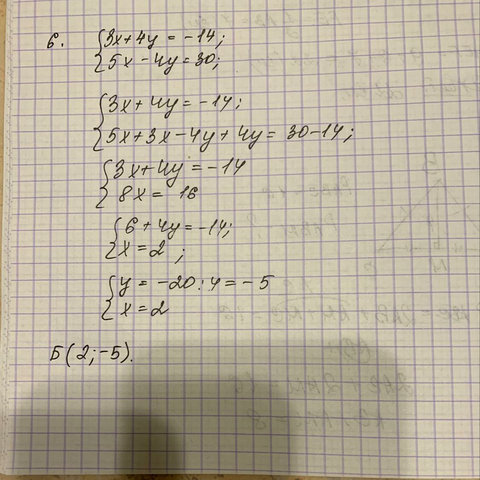 6. {3x+4y = -14;
{5x-4y = 30;
{3x+4y = -14;
{5x+3x-4y+4y = 30-14;
{3x+4y = -14
{8x = 16
{6+4y = -14;
{x = 2 ;
{y = -20:4 = -5
{x = 2
Б(2;-5).